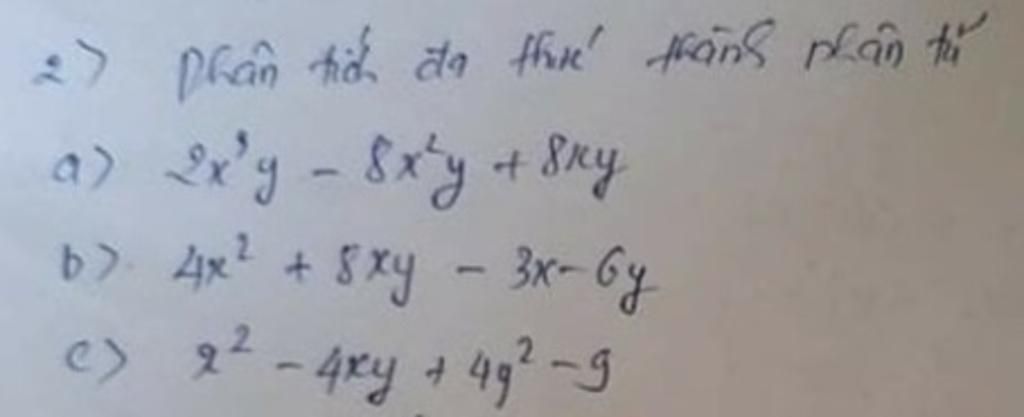 2) Phân tích đa thức thành phân tử
a) 2x³y - 8x²y + 8xy
b) 4x² + 8xy - 3x - 6y
c) x² - 4xy + 4y² - 9